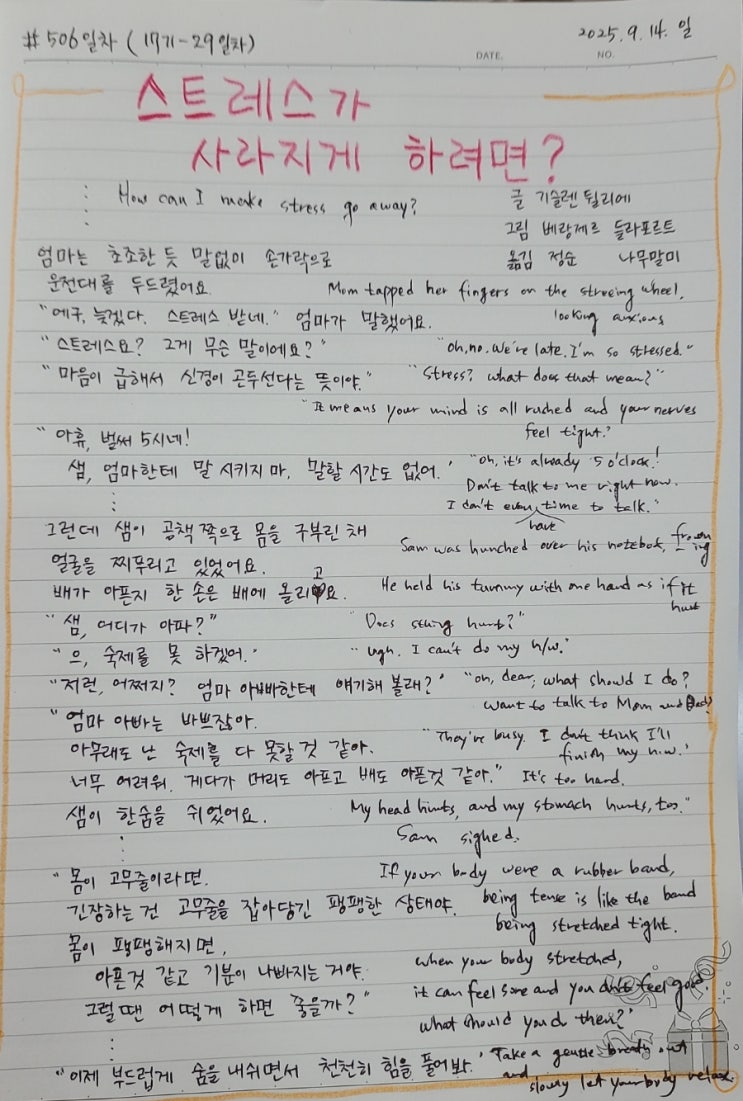 #506일차 (17기-29일차) 2025.9.14. 일
DATE. NO.
스트레스가
사라지게 하려면?
How can I make stress go away? 글 기슬렌 뒬리에
그림 베랑제르 들라포르트
엄마는 초조한 듯 말없이 손가락으로 옮김 정순 나무말미
운전대를 두드렸어요. Mom tapped her fingers on the streeing wheel,
looking anxious
"에구, 늦겠다. 스트레스 받네." 엄마가 말했어요.
"스트레스요? 그게 무슨 말이에요?" "Oh, no. We're late. I'm so stressed."
"마음이 급해서 신경이 곤두선다는 뜻이야." "Stress? what does that mean?"
"It means your mind is all ruched and your nerves
feel tight."
"아휴, 벌써 5시네!
샘, 엄마한테 말 시키지 마, 말할 시간도 없어." "Oh, it's already 5 o'clock!
Don't talk to me right now.
I don't even have time to talk."
그런데 샘이 공책 쪽으로 몸을 구부린 채
Sam was hunched over his notebok, frowning
얼굴을 찌푸리고 있었어요.
배가 아픈지 한 손은 배에 올리고요. He held his tummy with one hand as if it
hurt
"샘, 어디가 아파?" "Does sthing hurt?"
"으, 숙제를 못 하겠어." "Ugh. I can't do my h/w."
"저런, 어쩌지? 엄마 아빠한테 얘기해 볼래?" "Oh, dear, what should I do?
want to talk to Mom and Dad?
"엄마 아빠는 바쁘잖아.
아무래도 난 숙제를 다 못할 것 같아. "They're busy. I don't think I'll
finish my h.w."
너무 어려워. 게다가 머리도 아프고 배도 아픈것 같아." It's too hard.
샘이 한숨을 쉬었어요. My head hurts, and my stomach hurts, too."
Sam sighed.
"몸이 고무줄이라면, If your body were a rubber band,
긴장하는 건 고무줄을 잡아당긴 팽팽한 상태야. being tense is like the band
being stretched tight.
몸이 팽팽해지면,
when your body stretched,
아픈것 같고 기분이 나빠지는 거야.
it can feel sore and you don't feel good.
그럴 땐 어떻게 하면 좋을까?"
what should you do then?"
"이제 부드럽게 숨을 내쉬면서 천천히 힘을 풀어봐." Take a gentle breath out
and slowly let your body relax.